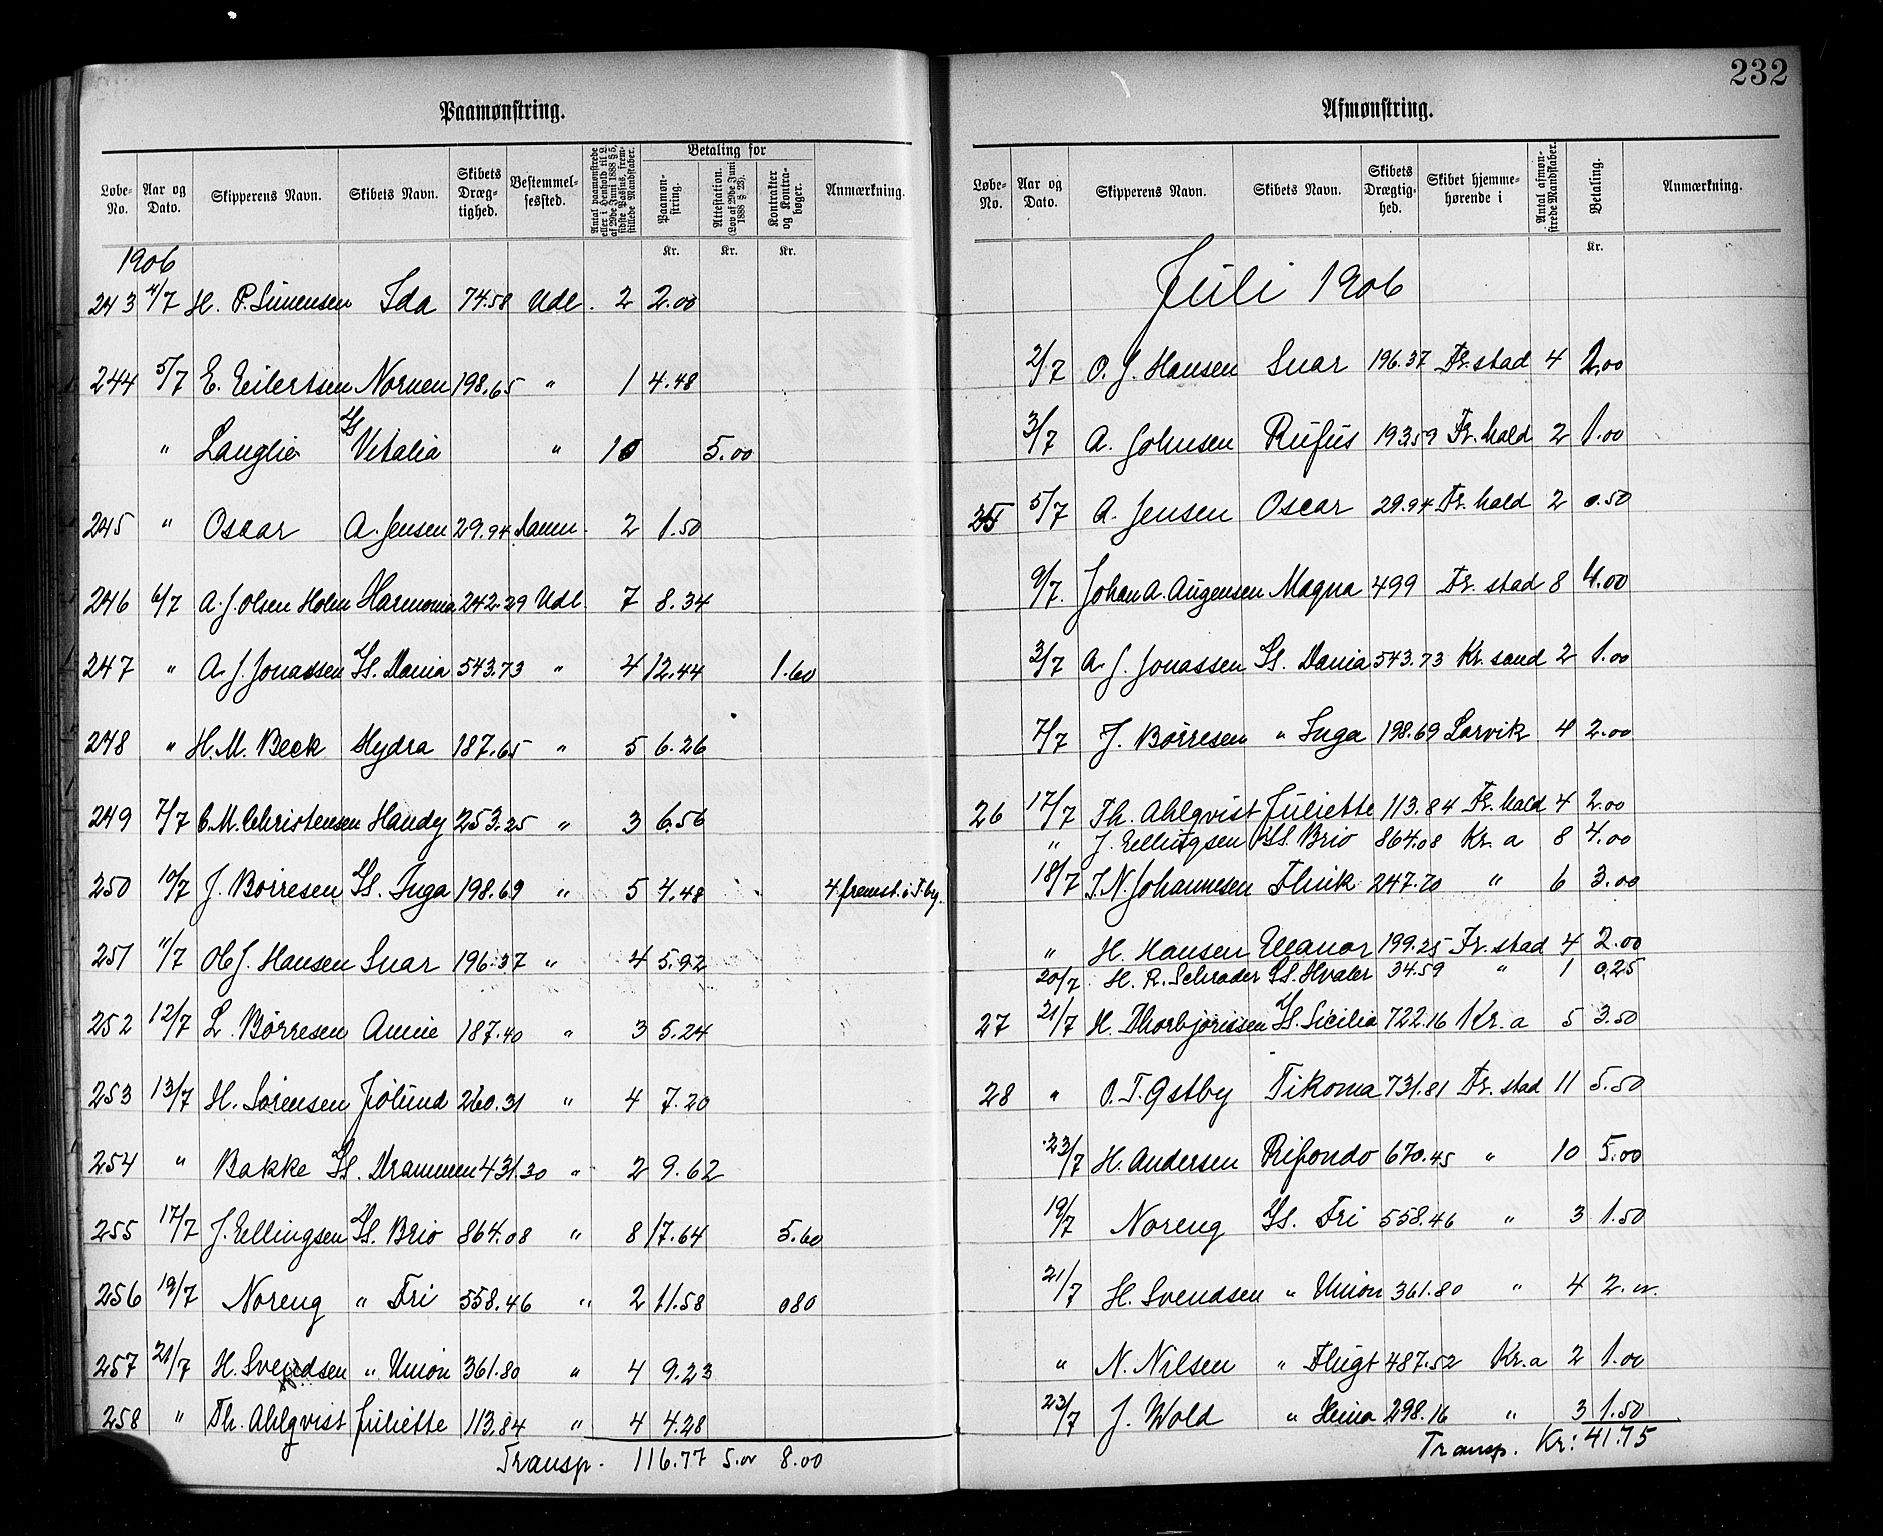 232
Paamønstring.
Løbe-No. Aar og Dato. Skipperens Navn. Skibets Navn. Skibets Dræg-tighed. Bestemmel-sessted. Antal paamønstrede eller i Henhold til L. af 29de Juni 1888 § 5, sidste Passus, frem-stillede Mandskaber. Betaling for Paamøn-string. Attestation. (Lov af 29de Juni 1888 § 28). Kontrakter og Kontra-bøger. Anmærkning.
Kr. Kr. Kr.
1906
243 4/7 H. P. Simensen Ida 74.58 Udl. 2 2.00
244 5/7 E. Eilertsen Nornen 198.65 " 1 4.48
" Langlie Ys Vitalia " 10 5.00
245 " Oscar A. Jensen 29.94 Danm. 2 1.50
246 6/7 A. J. Olsen Holm Harmonia 242.29 Udl 7 8.34
247 " A. J. Jonassen Ys. Dania 543.73 " 4 12.44 1.60
248 " H. M. Beck Hydra 187.65 " 5 6.26
249 7/7 C. M. Christensen Handy 253.25 " 3 6.56
250 10/7 J. Børresen Ys. Inga 198.69 " 5 4.48 4 fremst. i T.by.
251 11/7 Ol J. Hansen Snar 196.37 " 4 5.92
252 12/7 L. Børresen Annie 187.40 " 3 5.24
253 13/7 H. Sørensen Jølund 260.31 " 4 7.20
254 " Bakke Ys. Drammen 431.30 " 2 9.62
255 17/7 J. Ellingsen Ys. Brio 864.08 " 8 17.64 5.60
256 19/7 Noreng " Fri 558.46 " 2 11.58 0 80
257 21/7 H. Svendsen " Union 361.80 " 4 9.23
258 " Th. Ahlqvist Juliette 113.84 " 4 4.28
Transp. 116.77 5.00 8.00
Afmønstring.
Løbe-No. Aar og Dato. Skipperens Navn. Skibets Navn. Skibets Drægtig-hed. Skibet hjemme-hørende i Antal afmøn-strede Mandskaber. Betaling. Anmærkning.
Kr.
Juli 1906
2/7 O. J. Hansen Snar 196.37 Fr. stad 4 2.00
3/7 A. Johnsen Rufus 193.59 Fr. hald 2 1.00
25 5/7 A. Jensen Oscar 29.94 Fr. hald 2 0.50
9/7. Johan A. Augensen Magna 499 Fr. stad 8 4.00
3/7 A. J. Jonassen Ys. Dania 543.73 Kr. sand 2 1.00
7/7 J. Børresen " Inga 198.69 Larvik 4 2.00
26 17/7 Th. Ahlqvist Juliette 113.84 Fr. hald 4 2.00
" J. Ellingsen Ys. Brio 864.08 Kr. a 8 4.00
18/7 J. N. Johannesen Flink 247.70 " 6 3.00
" H. Hansen Eleanor 199.25 Fr. stad 4 2.00
20/7 H. R. Schrader Ys. Hvaler 34.59 " 1 0.25
27 21/7 H. Thorbjørnsen Ys. Sicilia 722.16 Kr. a 5 3.50
28 " O. T. Østby Tikoma 731.81 Fr. stad 11 5.50
23/7 H. Andersen Rifondo 670.45 " 10 5.00
19/7 Noreng Ys. Fri 558.46 " 3 1.50
21/7 H. Svendsen " Union 361.80 " 4 2.00
" N. Nilsen " Flugt 487.52 Kr. a 2 1.00
23/7 J. Wold " Heina 298.16 " 3 1.50
Transp. Kr: 41.75